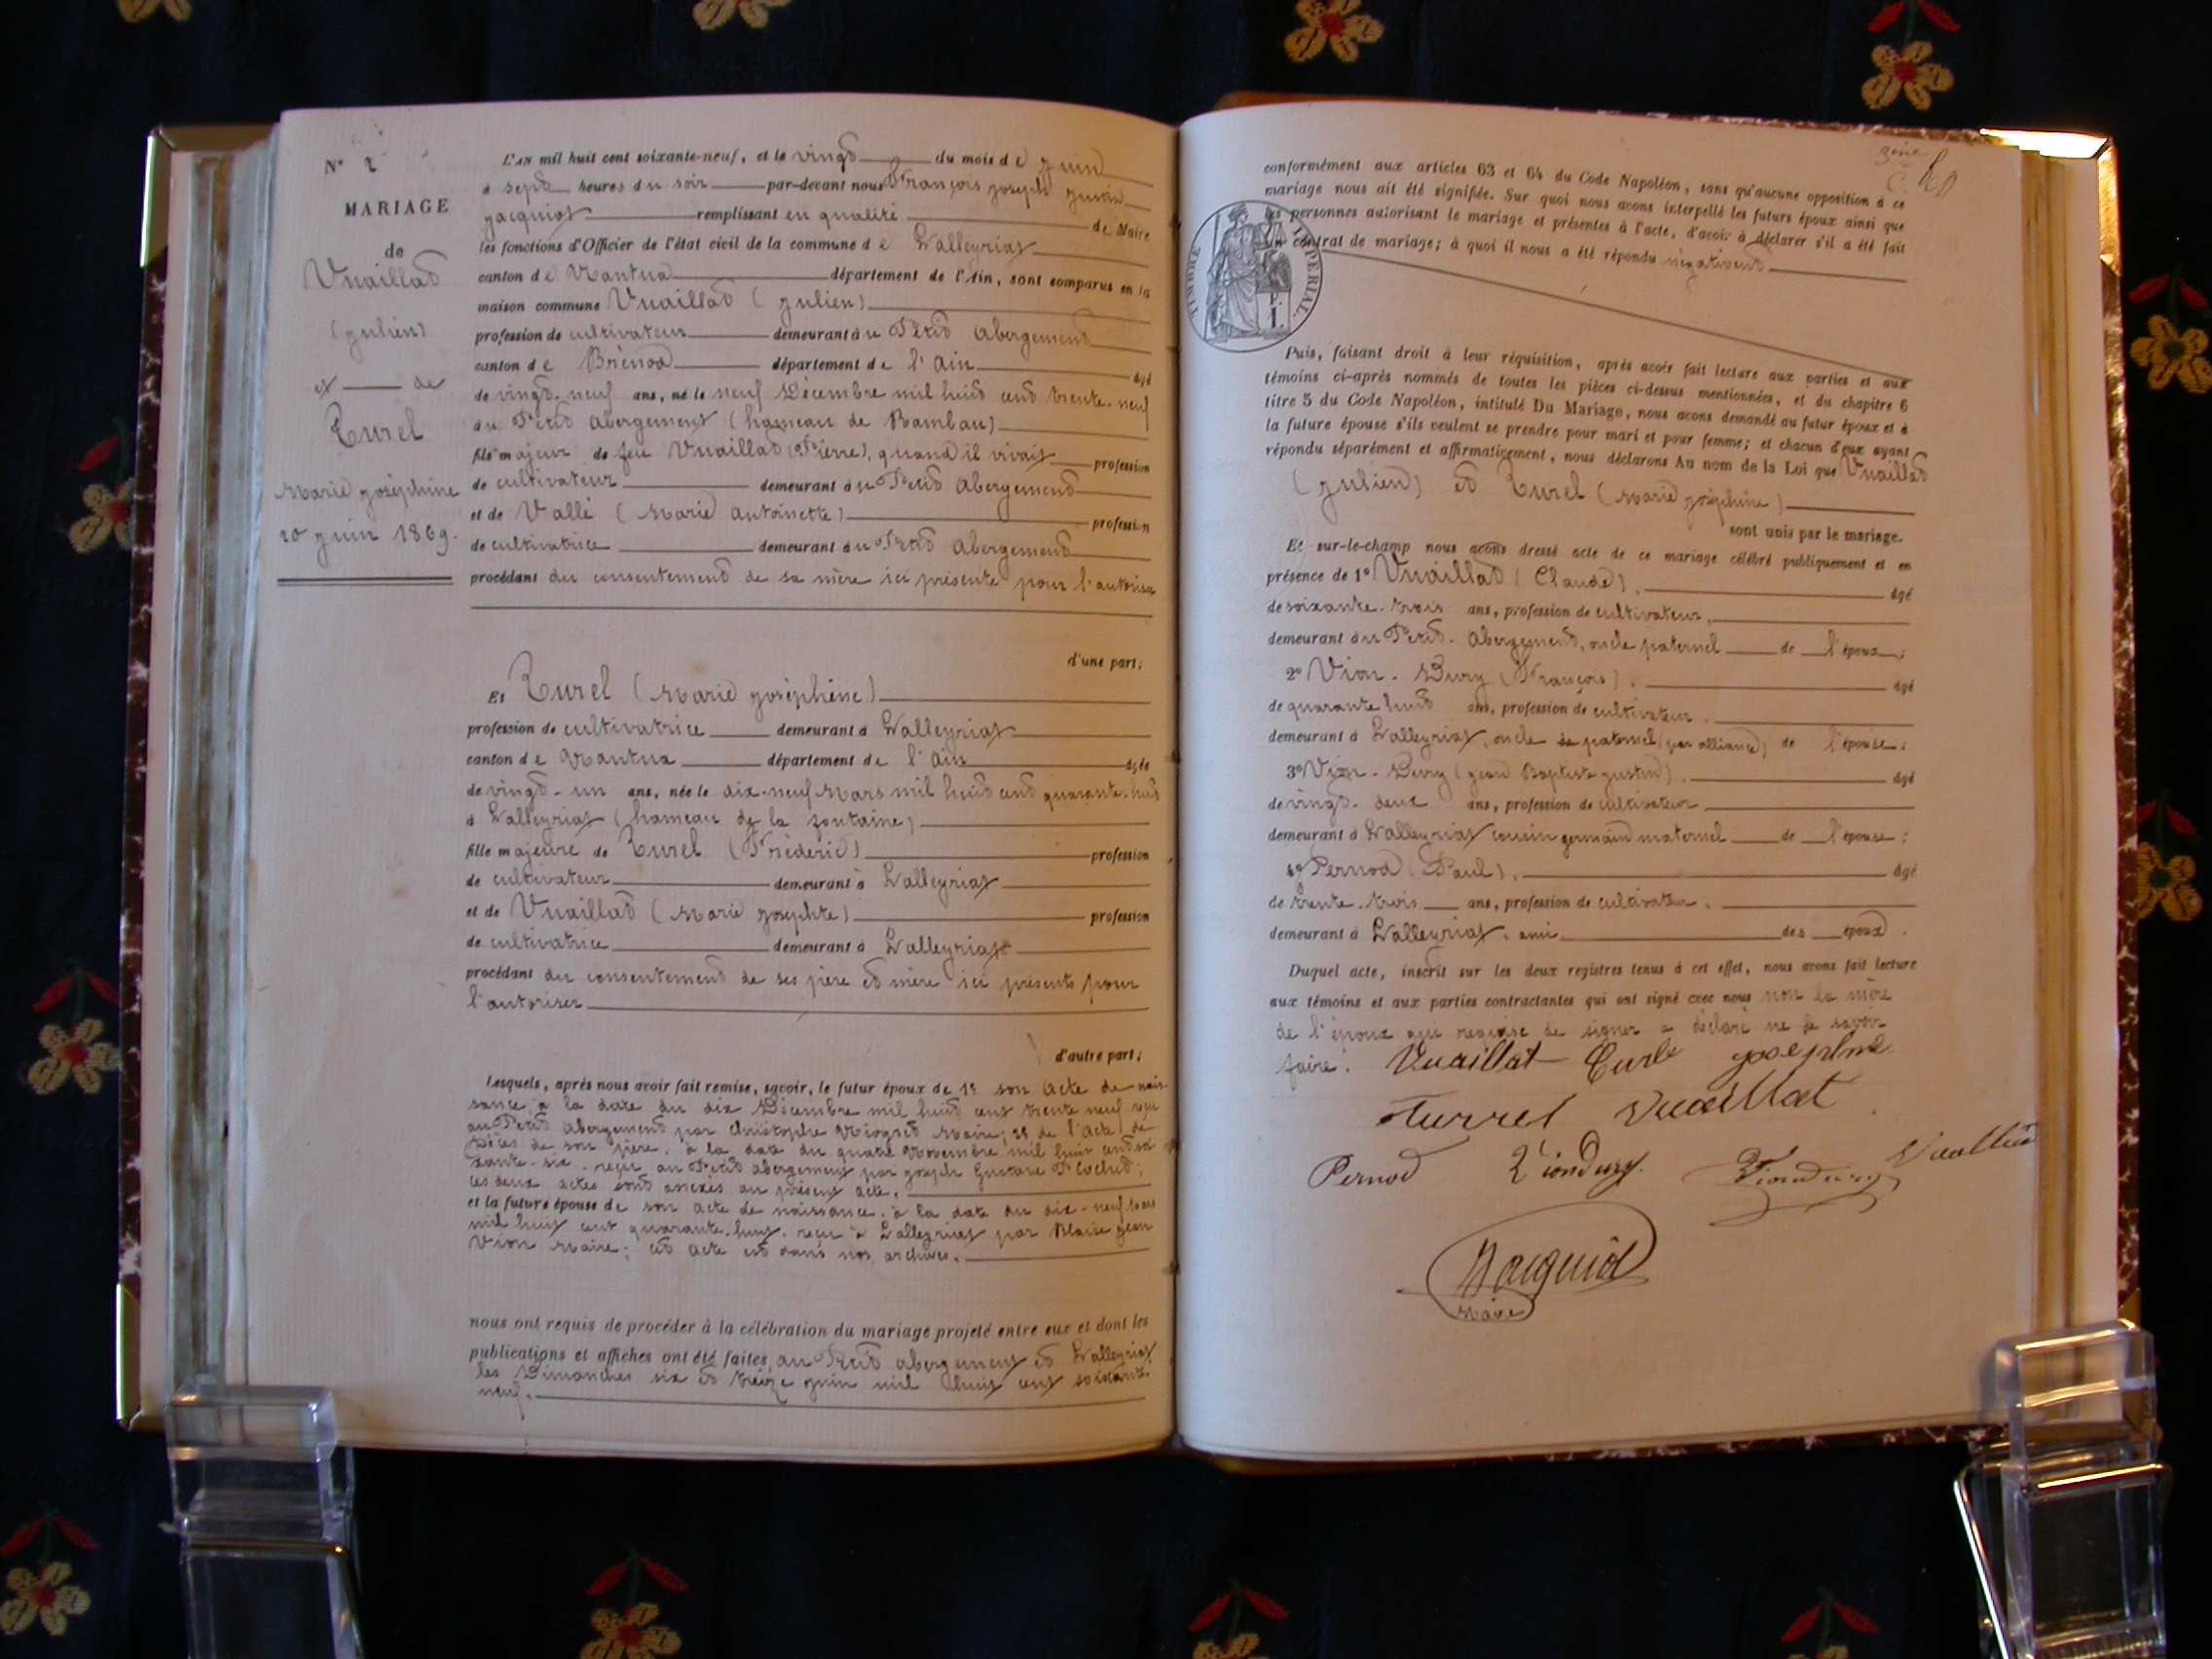 N° 2
MARIAGE
de
Vuaillat
(julien)
et de
Turel
Marie joséphine
20 juin 1869.
L'AN mil huit cent soixante-neuf, et le vingt du mois de juin
à sept heures du soir par-devant nous François joseph
jacquiot remplissant en qualité de Maire
les fonctions d'Officier de l'état civil de la commune de Lalleyriat
canton de Nantua département de l'Ain, sont comparus en la
maison commune Vuaillat (julien)
profession de cultivateur demeurant au Petit Abergement
canton de Brénod département de l'Ain âgé
de vingt-neuf ans, né le neuf Décembre mil huit cent trente-neuf
au Petit Abergement (hameau de
fils majeur de feu Vuaillat (Pierre), quand il vivait profession
de cultivateur demeurant au Petit Abergement
et de Vallé (Marie antoinette) profession
de cultivatrice demeurant au Petit Abergement
procédant du consentement de sa mère ici présente pour l'autoriser
d'une part;
Et Turel (Marie joséphine)
profession de cultivatrice demeurant à Lalleyriat
canton de Nantua département de l'Ain âgée
de vingt-un ans, née le dix-neuf Mars mil huit cent quarante-huit
à Lalleyriat (hameau de la fontaine)
fille majeure de Turel (Fréderic) profession
de cultivateur demeurant à Lalleyriat
et de Vuaillat (Marie josephte) profession
de cultivatrice demeurant à Lalleyriat
procédant du consentement de ses père et mère ici présents pour
l'autoriser
d'autre part;
Lesquels, après nous avoir fait remise, savoir, le futur époux de 1° son acte de nais-
sance, à la date du dix Décembre mil huit cent trente neuf reçu
au Petit Abergement par Christophe Maire; 2° de l'acte de
décès de son père, à la date du quatre Novembre mil huit cent soi-
xante-six, reçu au Petit abergement par joseph Gustave
ces deux actes sont annexés au présent acte.
et la future épouse de son acte de naissance, à la date du dix-neuf Mars
mil huit cent quarante-huit, reçu à Lalleyriat par Blaise jean
Vion Maire; cet acte est dans nos archives.
nous ont requis de procéder à la célébration du mariage projeté entre eux et dont les
publications et affiches ont été faites, au Petit abergement et Lalleyriat,
les Dimanches six et treize juin mil huit cent soixante-
neuf.
conformément aux articles 63 et 64 du Code Napoléon, sans qu'aucune opposition à ce
mariage nous ait été signifiée. Sur quoi nous avons interpellé les futurs époux ainsi que
les personnes autorisant le mariage et présentes à l'acte, d'avoir à déclarer s'il a été fait
un contrat de mariage; à quoi il nous a été répondu négativement
TIMBRE IMPÉRIAL
Puis, faisant droit à leur réquisition, après avoir fait lecture aux parties et aux
témoins ci-après nommés de toutes les pièces ci-dessus mentionnées, et du chapitre 6
titre 5 du Code Napoléon, intitulé Du Mariage, nous avons demandé au futur époux et à
la future épouse s'ils veulent se prendre pour mari et pour femme; et chacun d'eux ayant
répondu séparément et affirmativement, nous déclarons Au nom de la Loi que Vuaillat
(julien) et Turel (Marie joséphine)
sont unis par le mariage.
Et sur-le-champ nous avons dressé acte de ce mariage célébré publiquement et en
présence de 1° Vuaillat (Claude), âgé
de soixante-trois ans, profession de cultivateur,
demeurant au Petit-Abergement, oncle paternel de l'époux;
2° Vion-Dury (François), âgé
de quarante huit ans, profession de cultivateur,
demeurant à Lalleyriat, oncle paternel (par alliance) de l'épouse;
3° Vion-Dury (jean Baptiste justin), âgé
de vingt-deux ans, profession de cultivateur
demeurant à Lalleyriat cousin germain maternel de l'épouse;
4° Pernod (Paul), âgé
de trente-trois ans, profession de cultivateur,
demeurant à Lalleyriat, ami des époux.
Duquel acte, inscrit sur les deux registres tenus à cet effet, nous avons fait lecture
aux témoins et aux parties contractantes qui ont signé avec nous non la mère
de l'époux qui requise de signer a déclaré ne le savoir
faire.
Vuaillat josephine
Turrel Vuaillat
Pernod Viondury Viondury
Jacquiot
Maire